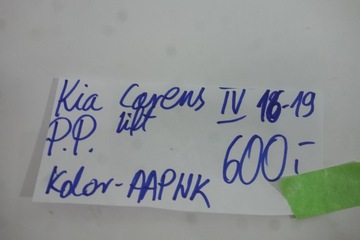 Kia Carens IV 16-19
P.P. lift
600,-
Kolor-AAPWK